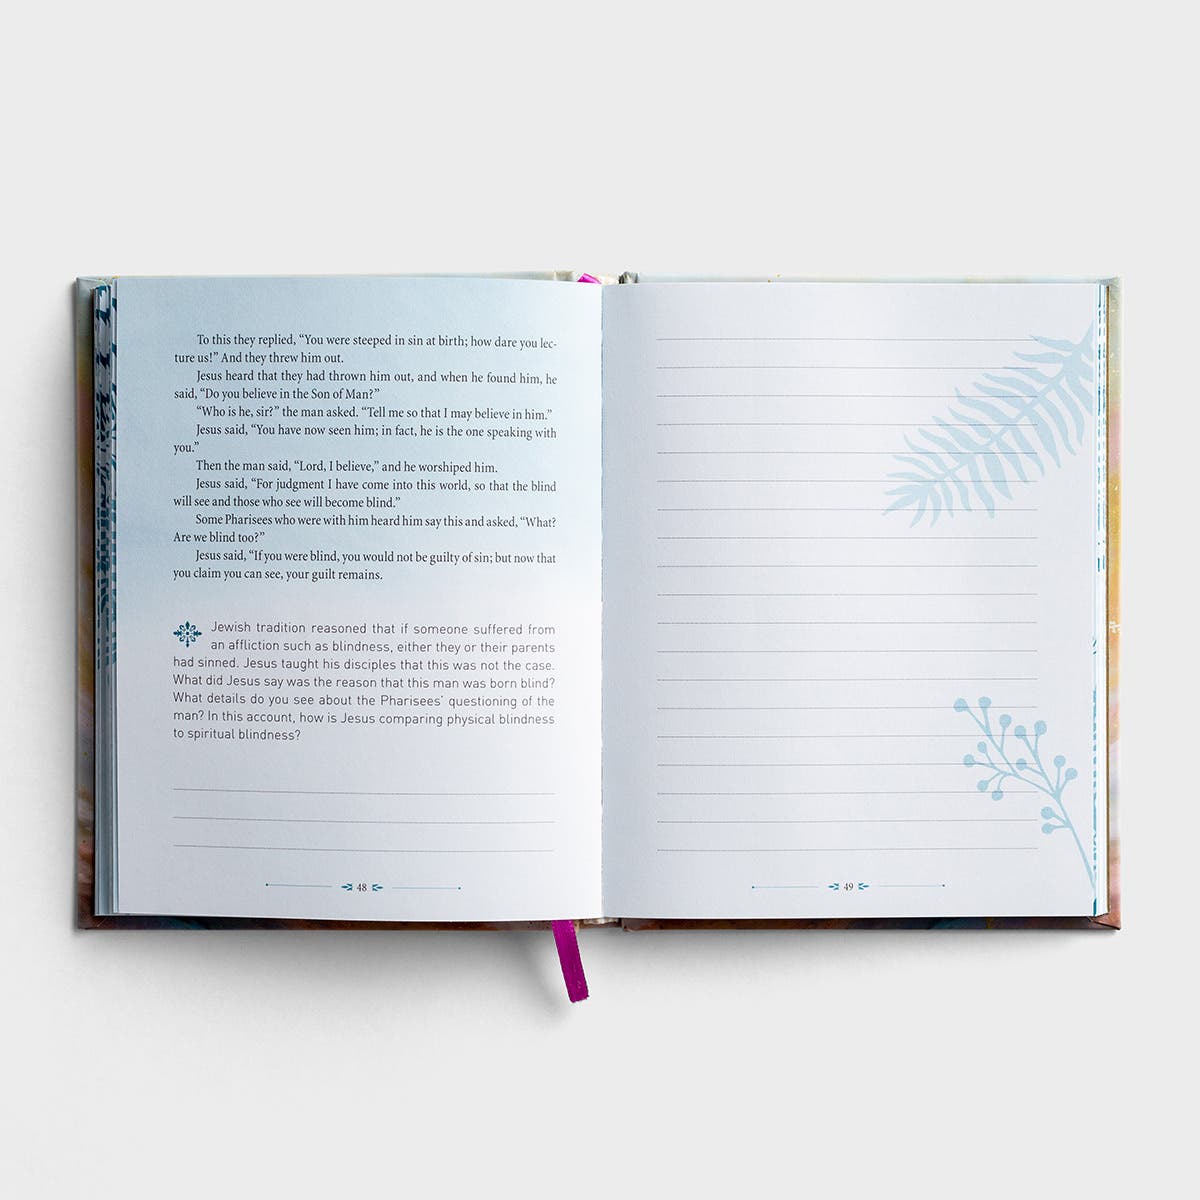 To this they replied, “You were steeped in sin at birth; how dare you lec-
ture us!” And they threw him out.
Jesus heard that they had thrown him out, and when he found him, he
said, “Do you believe in the Son of Man?”
“Who is he, sir?” the man asked. “Tell me so that I may believe in him.”
Jesus said, “You have now seen him; in fact, he is the one speaking with
you.”
Then the man said, “Lord, I believe,” and he worshiped him.
Jesus said, “For judgment I have come into this world, so that the blind
will see and those who see will become blind.”
Some Pharisees who were with him heard him say this and asked, “What?
Are we blind too?”
Jesus said, “If you were blind, you would not be guilty of sin; but now that
you claim you can see, your guilt remains.
Jewish tradition reasoned that if someone suffered from
an affliction such as blindness, either they or their parents
had sinned. Jesus taught his disciples that this was not the case.
What did Jesus say was the reason that this man was born blind?
What details do you see about the Pharisees’ questioning of the
man? In this account, how is Jesus comparing physical blindness
to spiritual blindness?
48
49